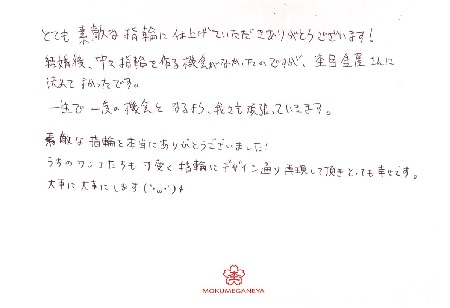 とても素敵な指輪に仕上げていただきありがとうございます!
結婚後、中々指輪を作る機会がなかったのですが、杢目金屋さんに
流れてよかったです。
一生で一度の機会となるよう、我々も頑張っていきます。
素敵な指輪を本当にありがとうございました!
うちのワンコたちも可愛く指輪にデザイン通り表現して頂きとっても幸せです。
大事に大事にします(´・ω・`)
MOKUMEGANEYA